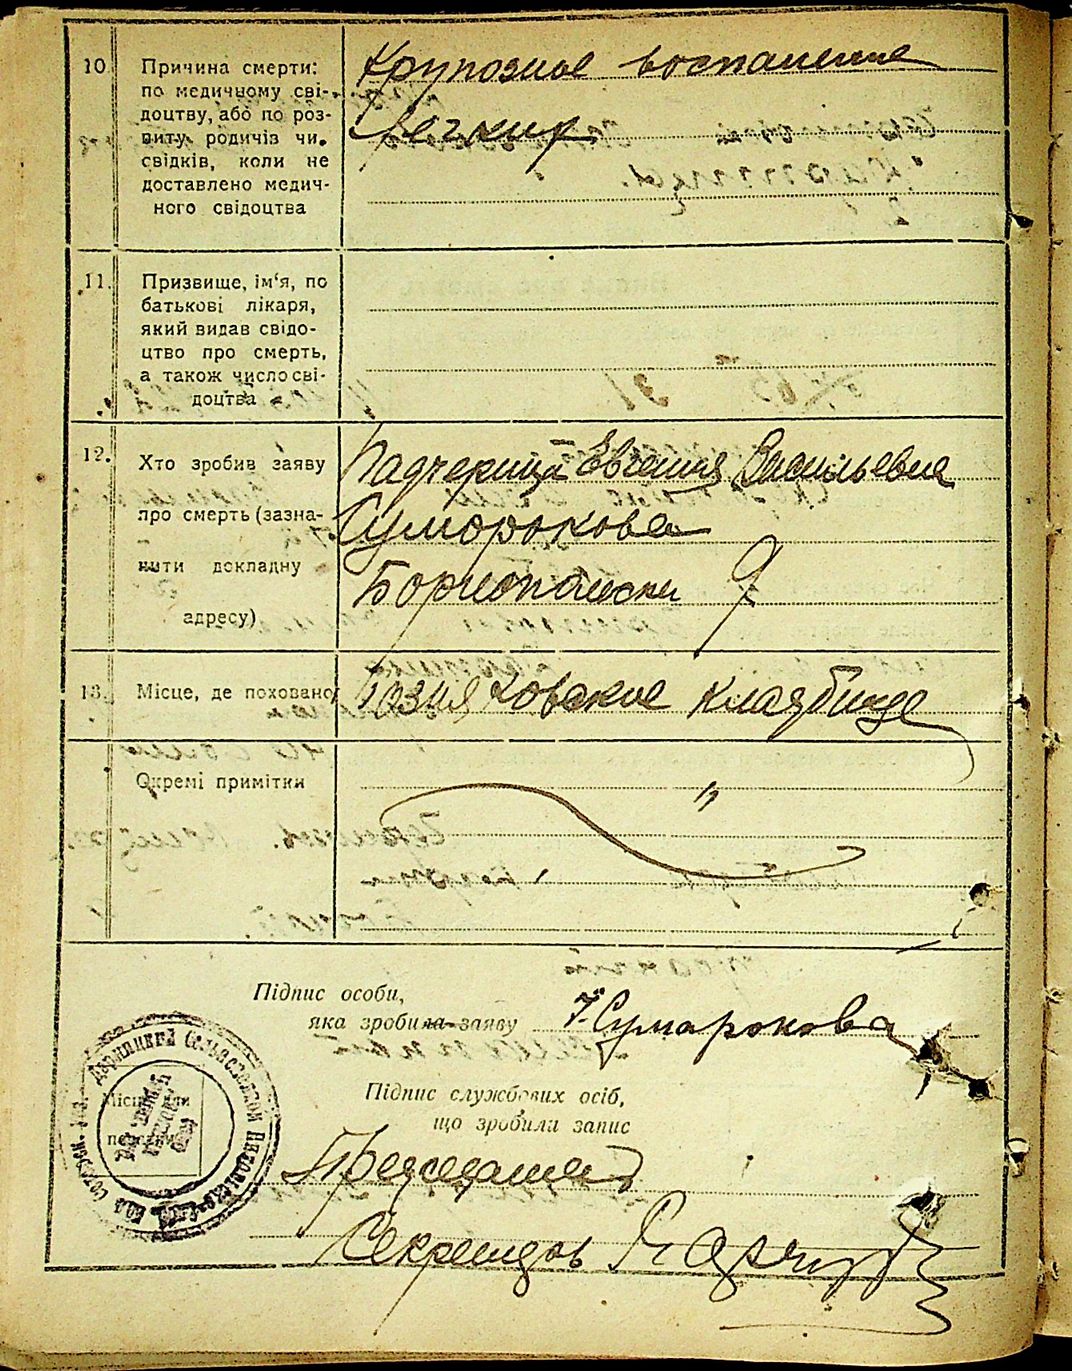 10. Причина смерти:
по медичному сві-
доцтву, або по роз-
питу родичів чи
свідків, коли не
доставлено медич-
ного свідоцтва
Крупозное воспаление
легких
11. Призвище, ім'я, по
батькові лікаря,
який видав свідо-
цтво про смерть,
а також число сві-
доцтва
12. Хто зробив заяву
про смерть (зазна-
чити докладну
адресу)
Падчерица Евгения Васильевна
Суморокова
13. Місце, де поховано
кладбище
Окремі примітки
"
Підпис особи,
яка зробила заяву
Сумарокова
Підпис службових осіб,
що зробили запис
Председатель
Секретарь